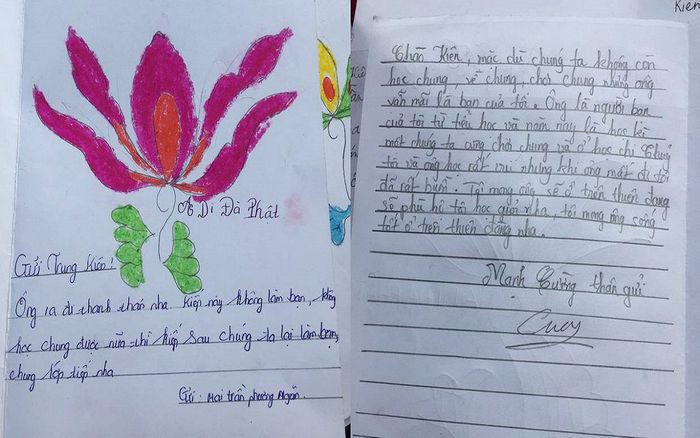 A Di Đà Phật
Gửi Trung Kiên!
Ông ra đi thanh thản nha. Kiếp này không làm bạn, không
học chung được nữa thì kiếp sau chúng ta lại làm bạn,
chung lớp tiếp nha
Gửi: Mai trần phương Ngân.
Kiên
Thân Kiên, mặc dù chúng ta không còn
học chung, về chung, chơi chung nhưng ông
vẫn mãi là bạn của tôi. Ông là người bạn
của tôi từ tiểu học và năm nay là học kề
một chúng ta cùng chơi chung và ở học chị Thuỷ
tôi và ông học rất vui nhưng khi ông mất đi tôi
đã rất buồn. Tôi mong ông sẽ ở trên thiên đàng
sẽ phù hộ tôi học giỏi nha, tôi mong ông sống
tốt ở trên thiên đàng nha.
Mạnh Cường thân gửi